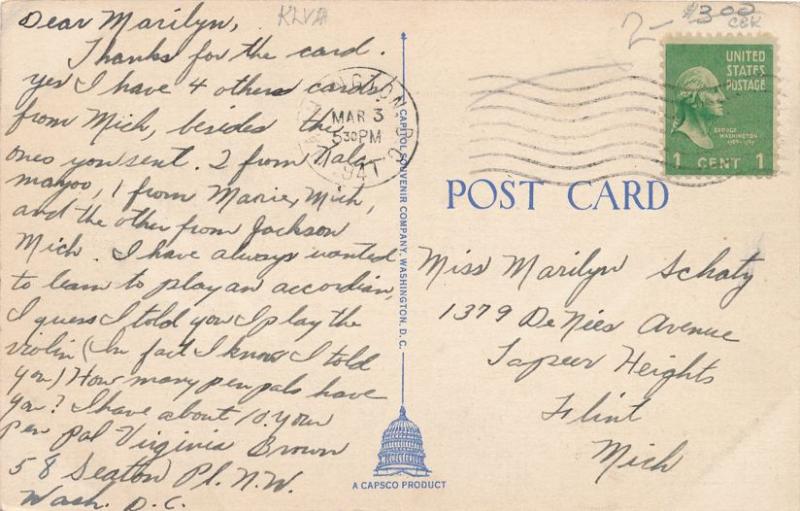 Dear Marilyn,
Thanks for the card.
yes I have 4 others cards
from Mich, besides the
ones you sent. 2 from Kala-
mazoo, 1 from Marie, Mich,
and the other from Jackson
Mich. I have always wanted
to learn to play an accordian,
I guess I told you I play the
violin (In fact I know I told
you) How many pen pals have
you? I have about 10. your
Pen Pal Virginia Brown
58 Seaton Pl. N.W.
Wash. D.C.
KLVA
MAR 3
5 30 PM
1941
CAPITOL SOUVENIR COMPANY, WASHINGTON, D.C.
A CAPSCO PRODUCT
2-
$3.00
CBK
UNITED
STATES
POSTAGE
GEORGE
WASHINGTON
1 CENT 1
POST CARD
Miss Marilyn Schatz
1379 DeNies Avenue
Lapeer Heights
Flint
Mich